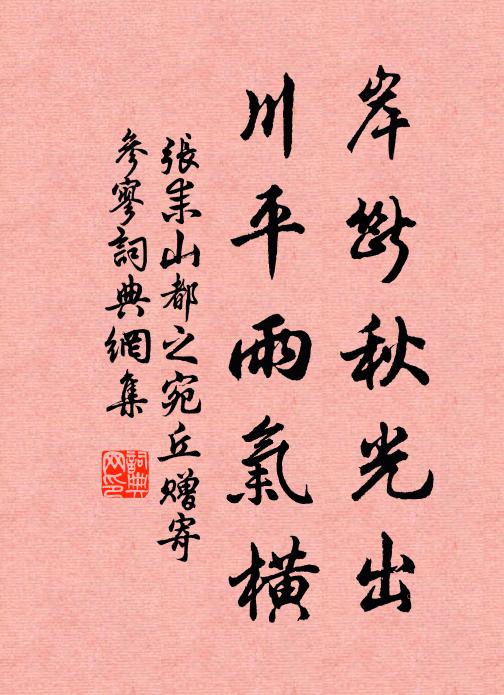 岸斷秋光出
川平雨氣橫
張耒山都之宛丘贈寄
參寥詞典網集
詞典
网印